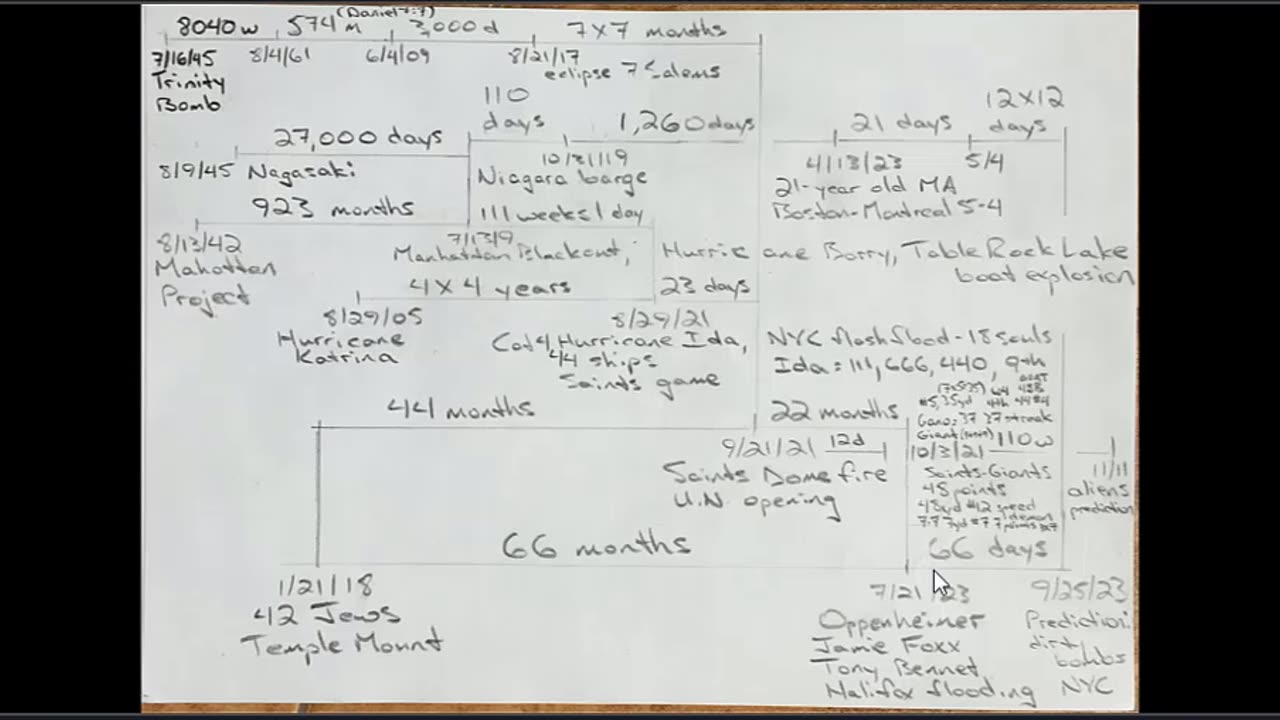 (Daniel 7:7)
8040w 574m 3,000d 7x7 months
7/16/45 8/4/61 6/4/09 8/21/17
Trinity eclipse 7 Salems
Bomb
110
days 1,260 days
27,000 days
12x12
21 days days
8/9/45 Nagasaki
10/31/19
Niagara barge
4/13/23 5/4
21-year old MA
Boston-Montreal 5-4
923 months
111 weeks 1 day
8/13/42
Mahattan
Project
7/13/9
Manhattan Blackout, Hurricane Barry, Table Rock Lake
boat explosion
4x4 years 23 days
8/29/05
Hurricane
Katrina
8/29/21
Cat 4 Hurricane Ida, NYC flash flood - 18 souls
44 ships Ida = 111, 666, 440, 9th
Saints game
#5, 35yd 44th 44 #4
Gano: 37 37 streak
44 months 22 months
Giant 110w
9/21/21 12d 10/3/21
Saints Dome fire
U.N. opening
Saints-Giants
48 points
48yd #42 speed
11/11
aliens
prediction
66 months 66 days
1/21/18
42 Jews
Temple Mount
7/21/23
Oppenheimer
Jamie Foxx
Tony Bennet
Halifax flooding
9/25/23
Prediction:
dirty
bombs
NYC